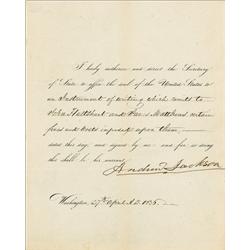 I hereby authorize and direct the Secretary
of State to affix the seal of the United States to
an Instrument of writing which remits to
John and Matthews certain
fines and costs imposed upon them,
dated this day, and signed by me and for so doing
this shall be his warrant.
Andrew Jackson
Washington, 27th April A.D. 1835.